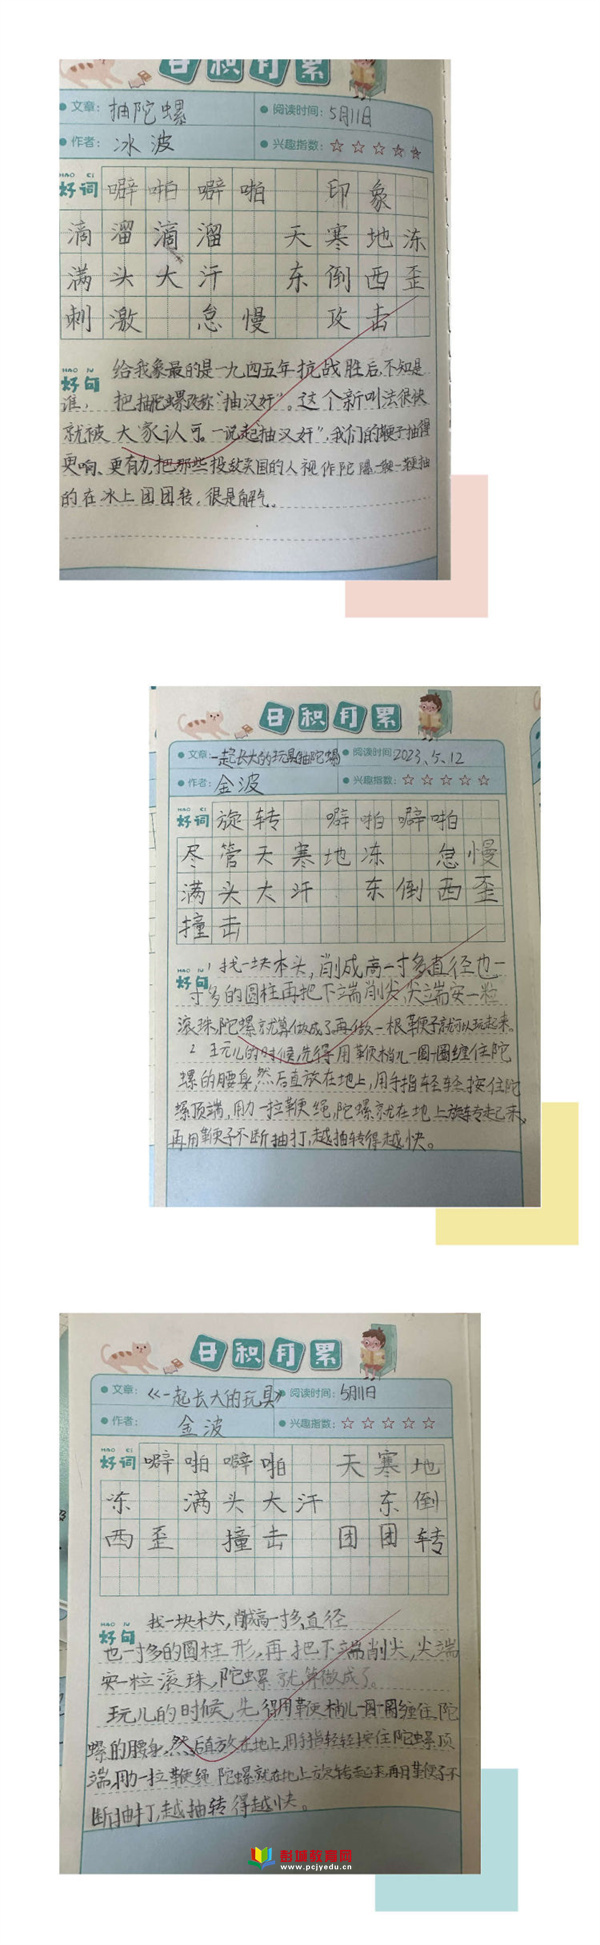 日积月累
文章：抽陀螺
阅读时间：5月11日
作者：冰波
兴趣指数：☆☆☆☆☆
HAO CI
好词 噼啪噼啪 印象
滴溜滴溜 天寒地冻
满头大汗 东倒西歪
刺激 怠慢 攻击
HAO JU
好句 给我象最的是一九四五年抗战胜后，不知是
谁，把抽陀螺改称“抽汉奸”。这个新叫法很快
就被大家认可。一说起“抽汉奸”，我们的鞭子抽得
更响、更有力，把那些投敌卖国的人视作陀螺一鞭一鞭抽
的在冰上团团转，很是解气。
日积月累
文章：一起长大的玩具抽陀螺
阅读时间 2023.5.12
作者：金波
兴趣指数：☆☆☆☆☆
HAO CI
好词 旋转 噼啪噼啪
尽管天寒地冻 怠慢
满头大汗 东倒西歪
撞击
HAO JU
好句 1 找一块木头，削成高一寸多直径也一
寸多的圆柱再把下端削尖，尖端安一粒
滚珠，陀螺就算做成了再做一根鞭子就可以玩起来。
2 玩儿的时候先得用鞭梢儿一圈一圈缠住陀
螺的腰身，然后直放在地上，用手指轻轻按住陀
螺顶端，用力一拉鞭绳，陀螺就在地上旋转起来，
再用鞭子不断抽打，越抽转得越快。
日积月累
文章：《一起长大的玩具》
阅读时间：5月11日
作者：金波
兴趣指数：☆☆☆☆☆
HAO CI
好词 噼啪噼啪 天寒地
冻 满头大汗 东倒
西歪 撞击 团团转
HAO JU
好句 找一块木头，削成高一寸多，直径
也一寸多的圆柱形，再把下端削尖，尖端
安一粒滚珠，陀螺就算做成了。
玩儿的时候，先得用鞭梢儿一圈一圈缠住陀
螺的腰身，然后直放在地上，用手指轻轻按住陀螺顶
端，用力一拉鞭绳，陀螺就在地上旋转起来，再用鞭子不
断抽打，越抽转得越快。
彭城教育网
www.pcjyedu.cn